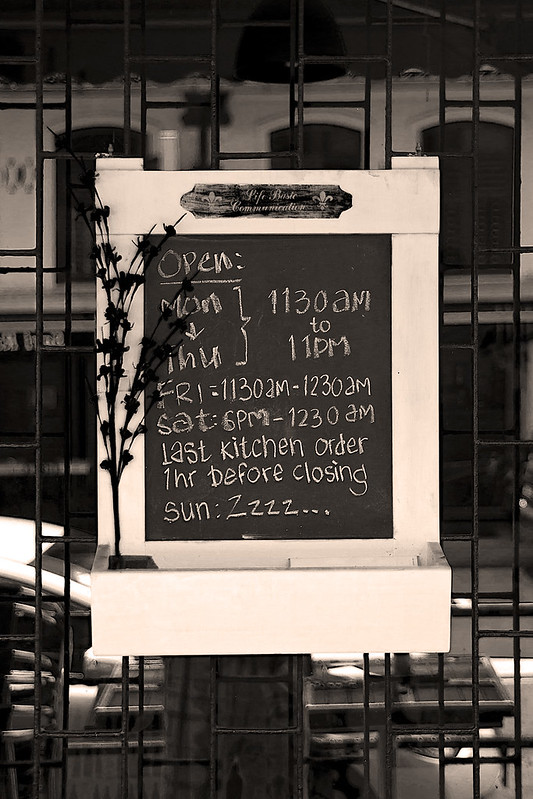 Life Baste
Communication
Open:
Mon } 1130am
↓ to
Thu 11pm
FRI:1130am-1230am
Sat:6pm-1230am
Last kitchen order
1hr before closing
sun: Zzzz...